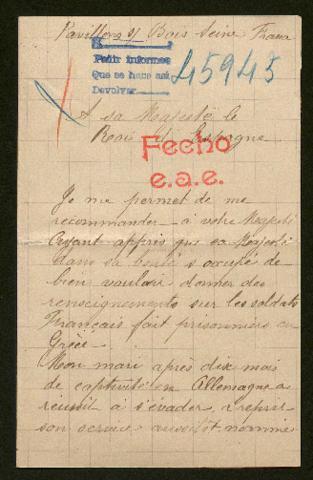 Pavillons s/ Bois Seine France
Pedir informes
Que se hace así
Devolver
45945
A sa Majesté le
Rois d' Espagne
Fecho
e.a.e.
Je me permet de me
recommander à votre Majesté
Ayant appris que sa Majesté
dans sa bonté s'occupé de
bien vouloir donner des
renseignements sur les soldats
Français fait prisonniers en
Mon mari après dix mois
de captivité en Allemagne a
réussit à s'évader, a repris
son service aussitôt nommé